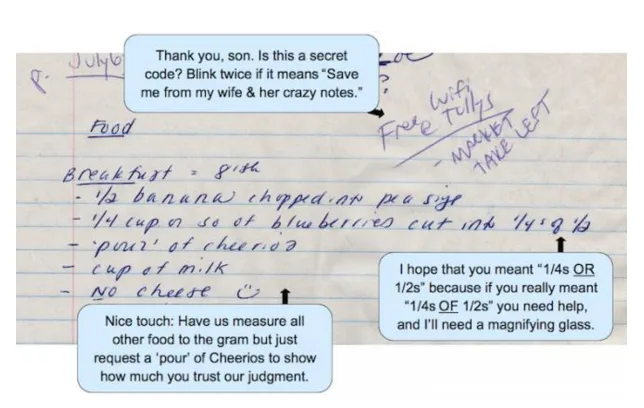 Thank you, son. Is this a secret
code? Blink twice if it means “Save
me from my wife & her crazy notes.”
P.
July 6
?
Free Wifi
Tullys
- MARKET
TAKE LEFT
Food
Breakfast = 8ish
- 1/2 banana chopped into pea size
- 1/4 cup or so of blueberries cut into 1/4s of 1/2
- 'pour' of cheerios
- cup of milk
- No cheese
I hope that you meant “1/4s OR
1/2s” because if you really meant
“1/4s OF 1/2s” you need help,
and I’ll need a magnifying glass.
Nice touch: Have us measure all
other food to the gram but just
request a ‘pour’ of Cheerios to show
how much you trust our judgment.